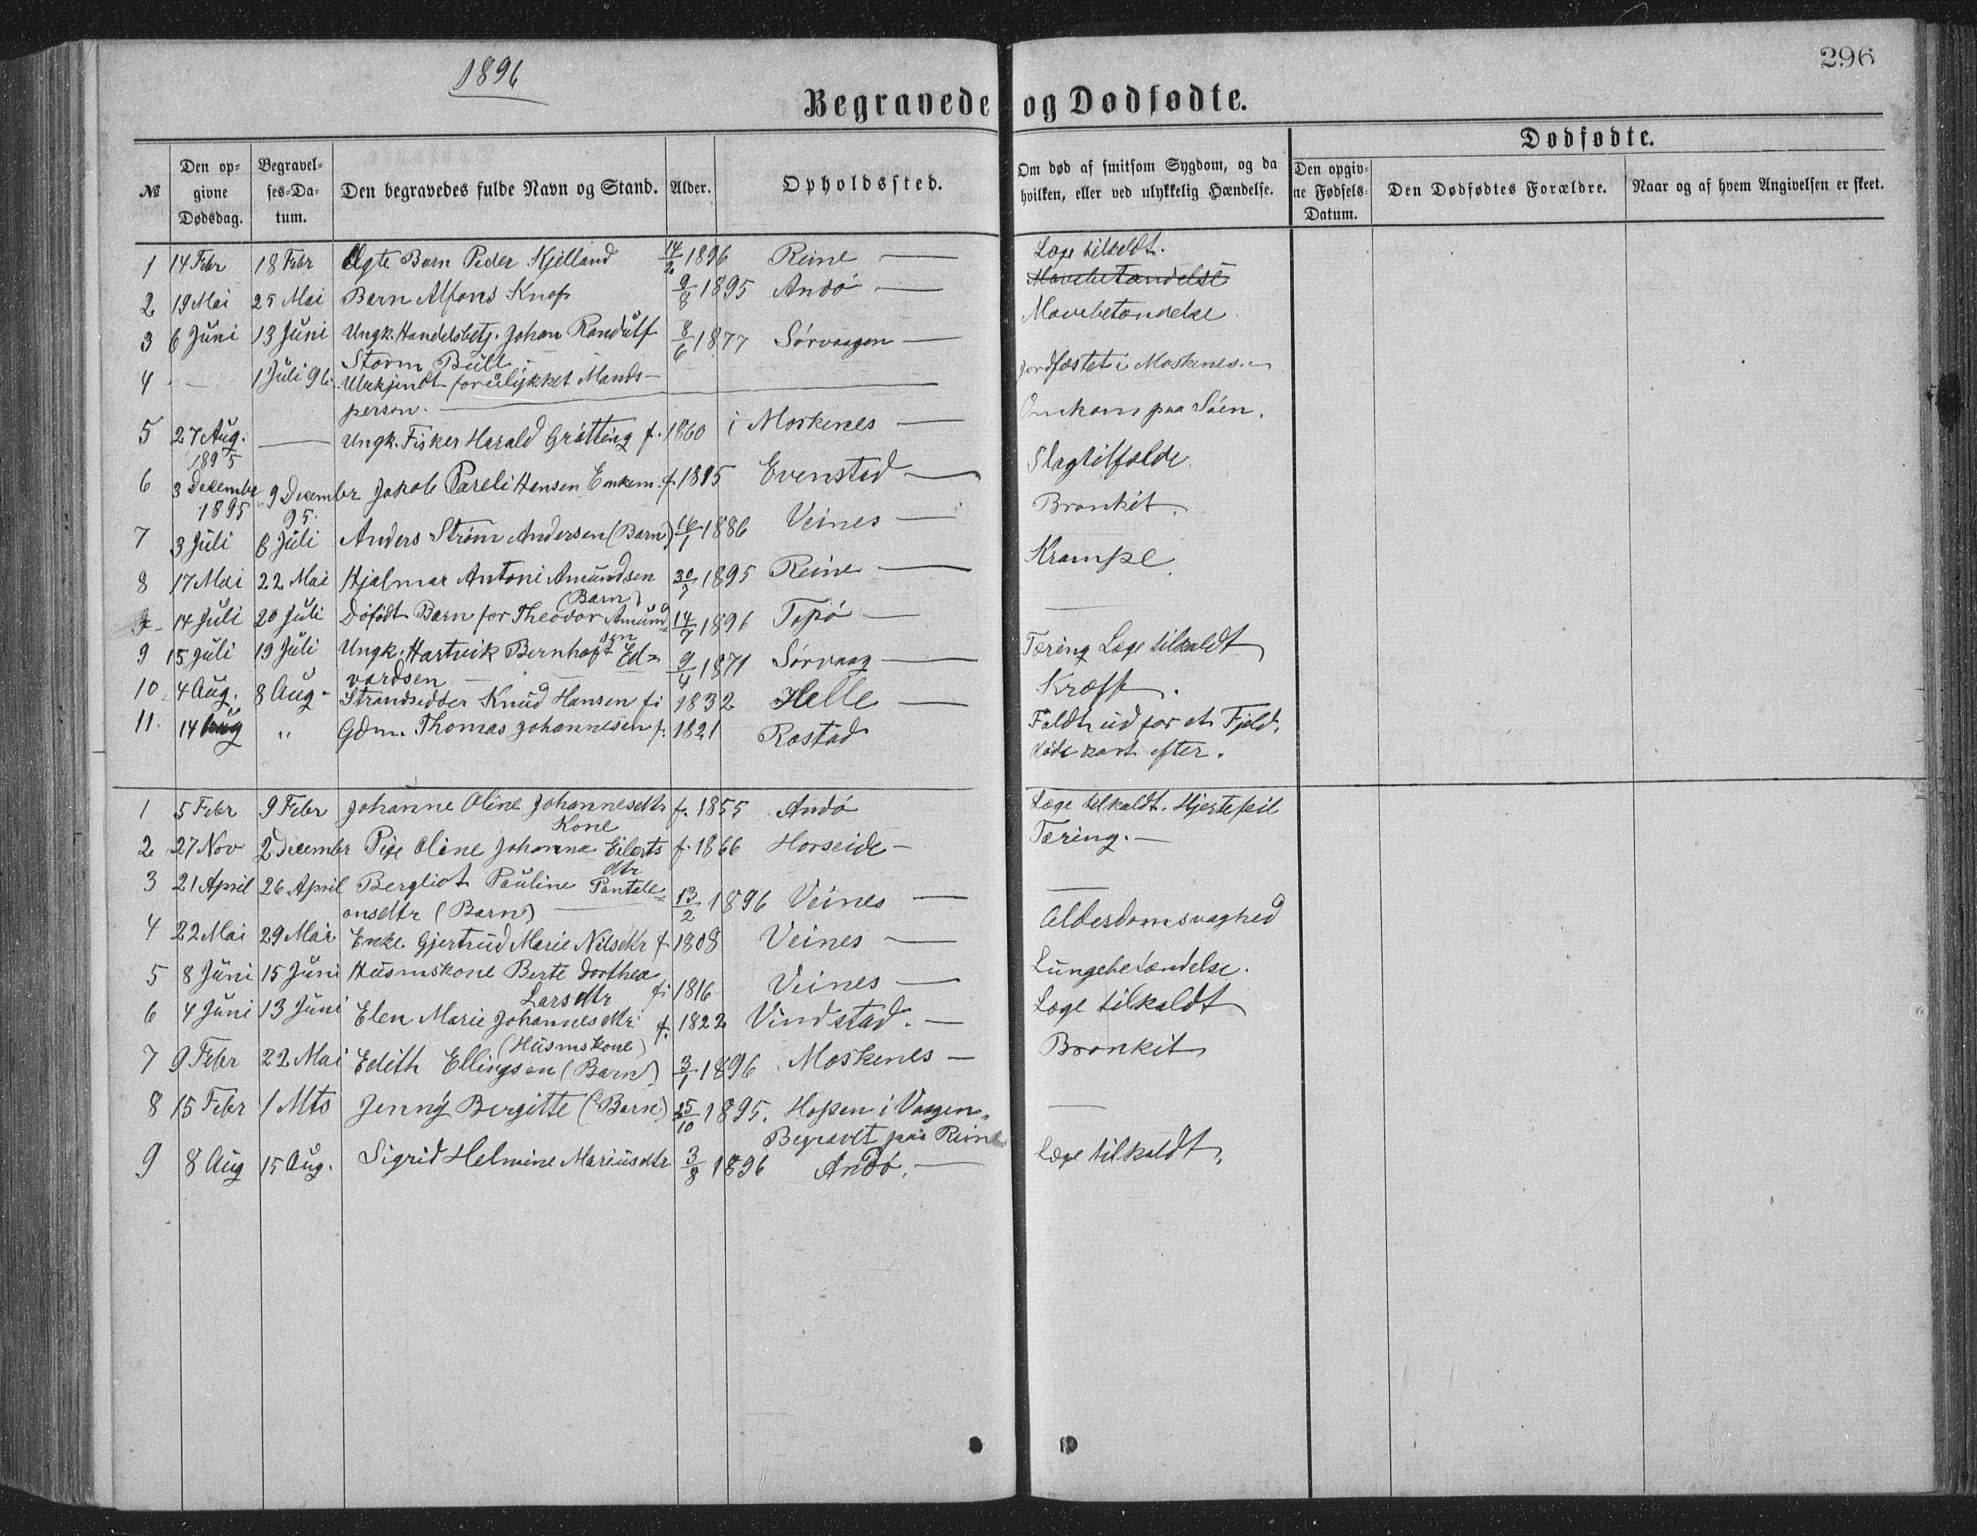 1896
296
Begravede og Dødfødte.
Dødfødte.
№ Den op-givne Dødsdag. Begravel-ses-Da-tum. Den begravedes fulde Navn og Stand. Alder. Opholdssted. Om død af smitsom Sygdom, og da hvilken, eller ved ulykkelig Hændelse. Den opgiv-ne Fødsels-Datum. Den Dødfødtes Forældre. Naar og af hvem Angivelsen er skeet.
1 14 Febr 18 Febr Ægte Barn Peder Kjelland 14/2 1896 Reine — Læge tilkaldt.
Mavebetændelse
2 19 Mai 25 Mai Barn Alfons Knop 9/8 1895 Andø — Mavebetændelse
3 6 Juni 13 Juni Ungk. Handelsbetj. Johan Randulf 8/6 1877 Sørvaagen —
Storm Bull —
4 — 1 Juli 96. Ubekjendt forulykket Mands- jordfæstet i Moskenes. —
person. —
5 27 Aug. — Ungk. Fisker Harald Grøtting f. 1860 i Moskenes — Omkom paa Søen.
1895
6 3 Decembr 9 Decembr Jakob Pareli Hansen Enkem. f. 1815 Evenstad — Slagtilfælde.
1895 95.
7 3 Juli 8 Juli Anders Strøm Andersen (Barn) 16/1 1886 Veines — Bronkit.
8 17 Mai 22 Mai Hjalmar Antoni Amundsen 30/7 1895 Reine — Krampe
(Barn)
14 Juli 20 Juli Døfødt Barn for Theodor Amund- 14/7 1896 Topø — —
sen
9 15 Juli 19 Juli Ungk. Hartvik Bernhoft Ed- 9/4 1871 Sørvaag — Tæring Læge tilkaldt
vardsen —
10 4 Aug. 8 Aug. Strandsidder Knud Hansen f. 1832 Helle — Kræft.
11. 14 Aug „ Gdm. Thomas Johannesen f. 1821 Rostad Faldt ud for et Fjeld.
døde kort efter.
1 5 Febr 9 Febr Johanne Oline Johannesdtr f. 1855 Andø Læge tilkaldt. Hjertefeil
Kone
2 27 Nov 2 Decembr Pige Oline Johanna Eilerts f. 1866 Horseide — Tæring. —
dtr
3 21 April 26 April Bergliot Pauline Pantale- 13/2 1896 Veines — —
onsdtr (Barn) —
4 22 Mai 29 Mai Enke Gjertrud Marie Nilsdtr f 1808 Veines — Alderdomsvaghed
5 8 Juni 15 Juni Husmskone Berte Dorthea f. 1816 Veines — Lungebetændelse.
Larsdtr
6 4 Juni 13 Juni Elen Marie Johannesdtr f. 1822 Vindstad. — Læge tilkaldt
(Husmskone)
7 9 Febr 22 Mai Edith Ellingsen (Barn) 3/1 1896 Moskenes — Bronkit
8 15 Febr 1 Mts Jenny Bergitte (Barn) 25/10 1895. Hopen i Vaagen. —
Begravet paa Reine
9 8 Aug 15 Aug. Sigrid Helmine Mariusdtr 3/8 1896 Andø. — Læge tilkaldt.